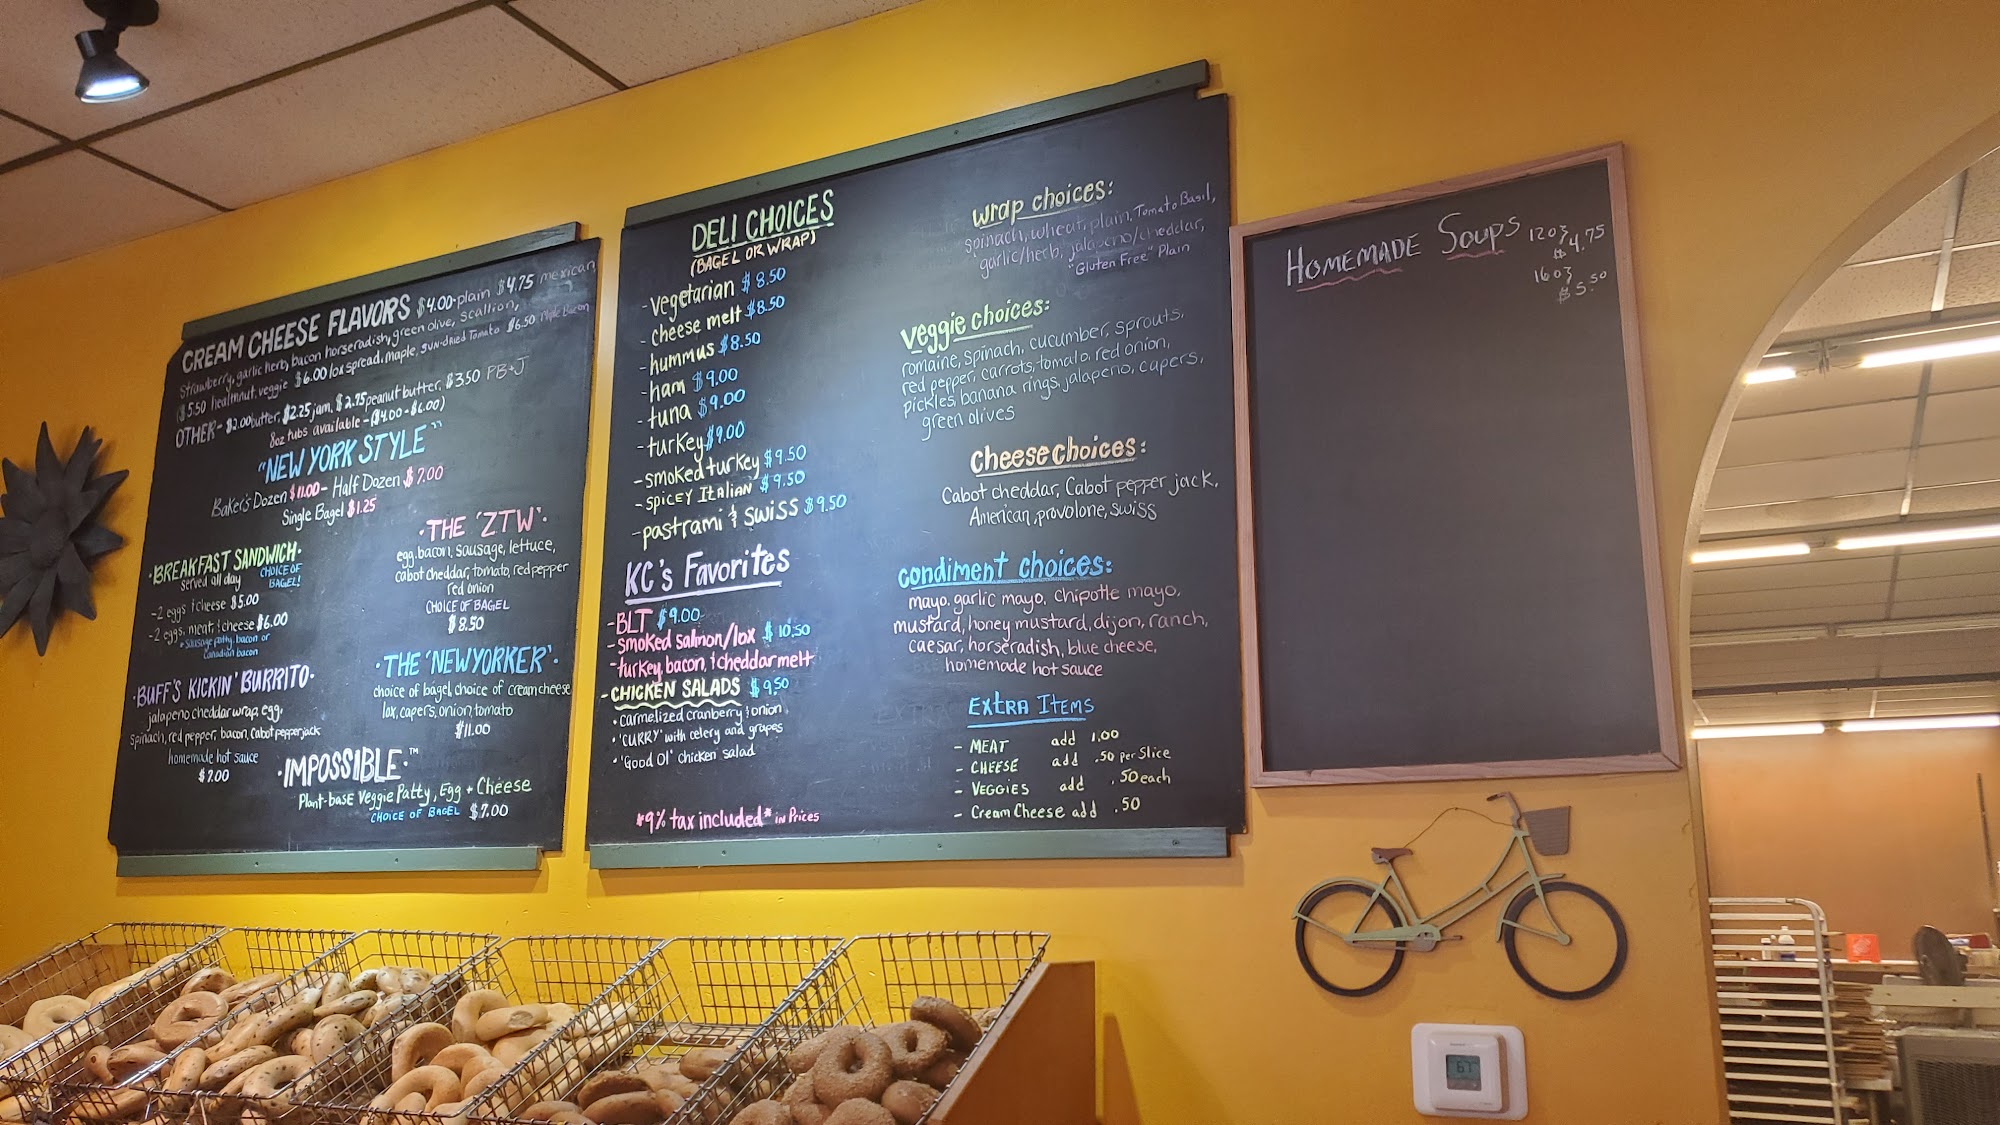 CREAM CHEESE FLAVORS $4.00-plain $4.75 mexican
strawberry, garlic herb, bacon horseradish, green olive, scallion,
$5.50 healthnut veggie $6.00 lox spread, maple, sun-dried Tomato $6.50 Maple Bacon
OTHER - $2.00 butter, $2.25 jam, $2.75 peanut butter, $3.50 PB+J
8oz tubs available - ($4.00 - $6.00)
"NEW YORK STYLE"
Baker's Dozen $11.00 - Half Dozen $7.00
Single Bagel $1.25
·BREAKFAST SANDWICH·
served all day CHOICE OF
BAGEL!
-2 eggs & cheese $5.00
-2 eggs, meat, & cheese $6.00
*sausage patty, bacon or
Canadian bacon
BUFF'S KICKIN' BURRITO·
jalapeno cheddar wrap, egg,
spinach, red pepper, bacon, Cabot pepperjack
homemade hot sauce
$7.00
·THE 'ZTW'·
egg, bacon, sausage, lettuce,
cabot cheddar, tomato, red pepper
red onion
CHOICE OF BAGEL
$8.50
·THE 'NEWYORKER'·
choice of bagel, choice of cream cheese
lox, capers, onion, tomato
$11.00
·IMPOSSIBLE·™
Plant-basE Veggie Patty, Egg + Cheese
CHOICE OF BAGEL $7.00
DELI CHOICES
(BAGEL OR WRAP)
-vegetarian $8.50
-cheese melt $8.50
-hummus $8.50
-ham $9.00
-tuna $9.00
-turkey $9.00
-smoked turkey $9.50
-SPICEY ITALIAN $9.50
-pastrami & swiss $9.50
KC's Favorites
-BLT $9.00
-smoked salmon/lox $10.50
-turkey, bacon, & cheddar melt
-CHICKEN SALADS $9.50
·carmelized cranberry & onion
·'CURRY' with celery and grapes
·'Good Ol' chicken salad
*9% tax included* in Prices
wrap choices:
spinach, wheat, plain, Tomato Basil,
garlic/herb, jalapeno/cheddar,
"Gluten Free" Plain
Veggie choices:
romaine, spinach, cucumber, sprouts,
red pepper, carrots, tomato, red onion,
pickles, banana rings, jalapeno, capers,
green olives
cheese choices:
Cabot cheddar, Cabot pepper jack,
American, provolone, swiss
condiment choices:
mayo, garlic mayo, chipotle mayo,
mustard, honey mustard, dijon, ranch,
caesar, horseradish, blue cheese,
homemade hot sauce
EXTRA ITEMS
- MEAT add 1.00
- CHEESE add .50 per Slice
- VEGGIES add .50 each
- Cream Cheese add .50
HOMEMADE Soups 12oz
$4.75
16oz
$5.50
67